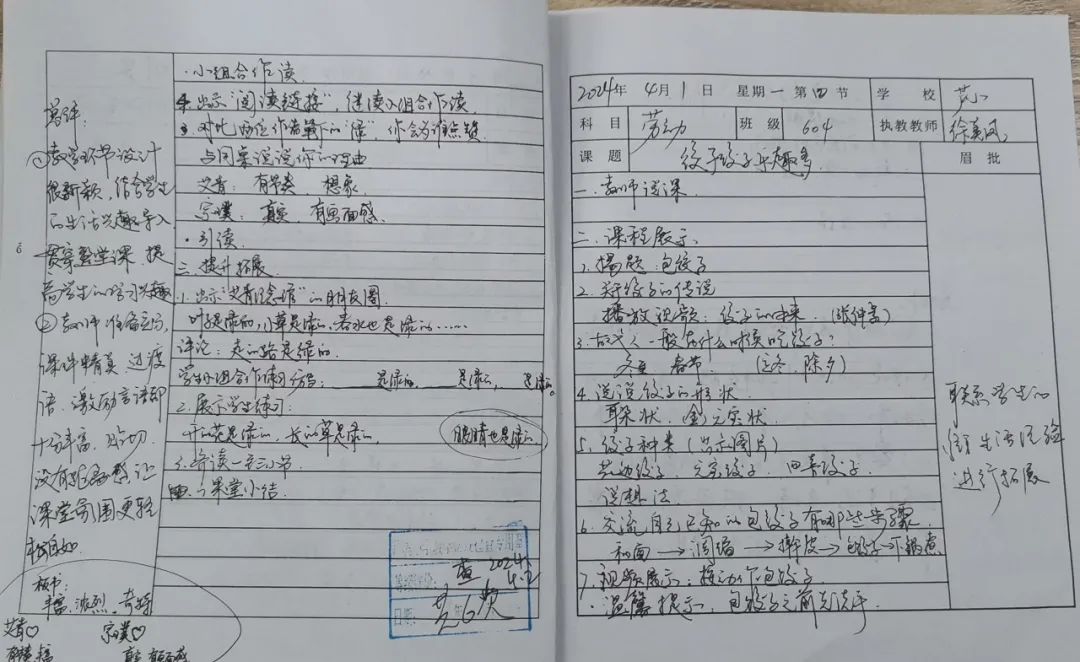 ·小组合作读
4.出示“阅读链接”,继续小组合作读
与同桌说说你的理由
艾青: 有节奏 想象
宗璞: 真实 有画面感
·引读
三.提升拓展
1.出示“艾青 ”的朋友圈
叶是绿的,小草是绿的,春水也是绿的……
评论:走的路是绿的
学生小组合作练习仿写: 是绿的, 是绿的, 是绿的。
2.展示学生练习:
开的花是绿的,长的草是绿的, 眼睛也是绿的
3.导读一至三小节
课堂小结
总评:
①教学环节设计
很新颖,结合学生
的生活兴趣导入
贯穿整堂课,提
高学生的学习兴趣
②教师准备充分,
课件精美,过渡
语、激励言语都
十分丰富、贴切,
没有 感 让
课堂氛围更轻
松自如
板书:
丰富、浓烈、奇特
艾青♡ 宗璞♡
6
查 2024
4.2
日期: 年 6 次
2024年 4月 1 日 星期 一 第 四 节 学 校
科 目 劳动 班 级 604 执教教师 徐美凤
课 题 饺子饺子乐趣多 眉 批
一.教师说课
二.课程展示
1.揭题:包饺子
2.关于饺子的传说
播放视频:饺子的由来 (张仲景)
3.古代人一般在什么时候吃饺子?
冬至 春节 (立冬、除夕)
4.说说饺子的形状
耳朵状、(金)元宝状
5.饺子种类(出示图片)
花边饺子、元宝饺子、四喜饺子
说想法
6.交流自己已知的包饺子有哪些步骤
和面→调馅→擀皮→包饺子→下锅煮
7.视频展示:按动作包饺子
·温馨提示:包饺子之前先洗手
联系学生的
生活经验
进行拓展